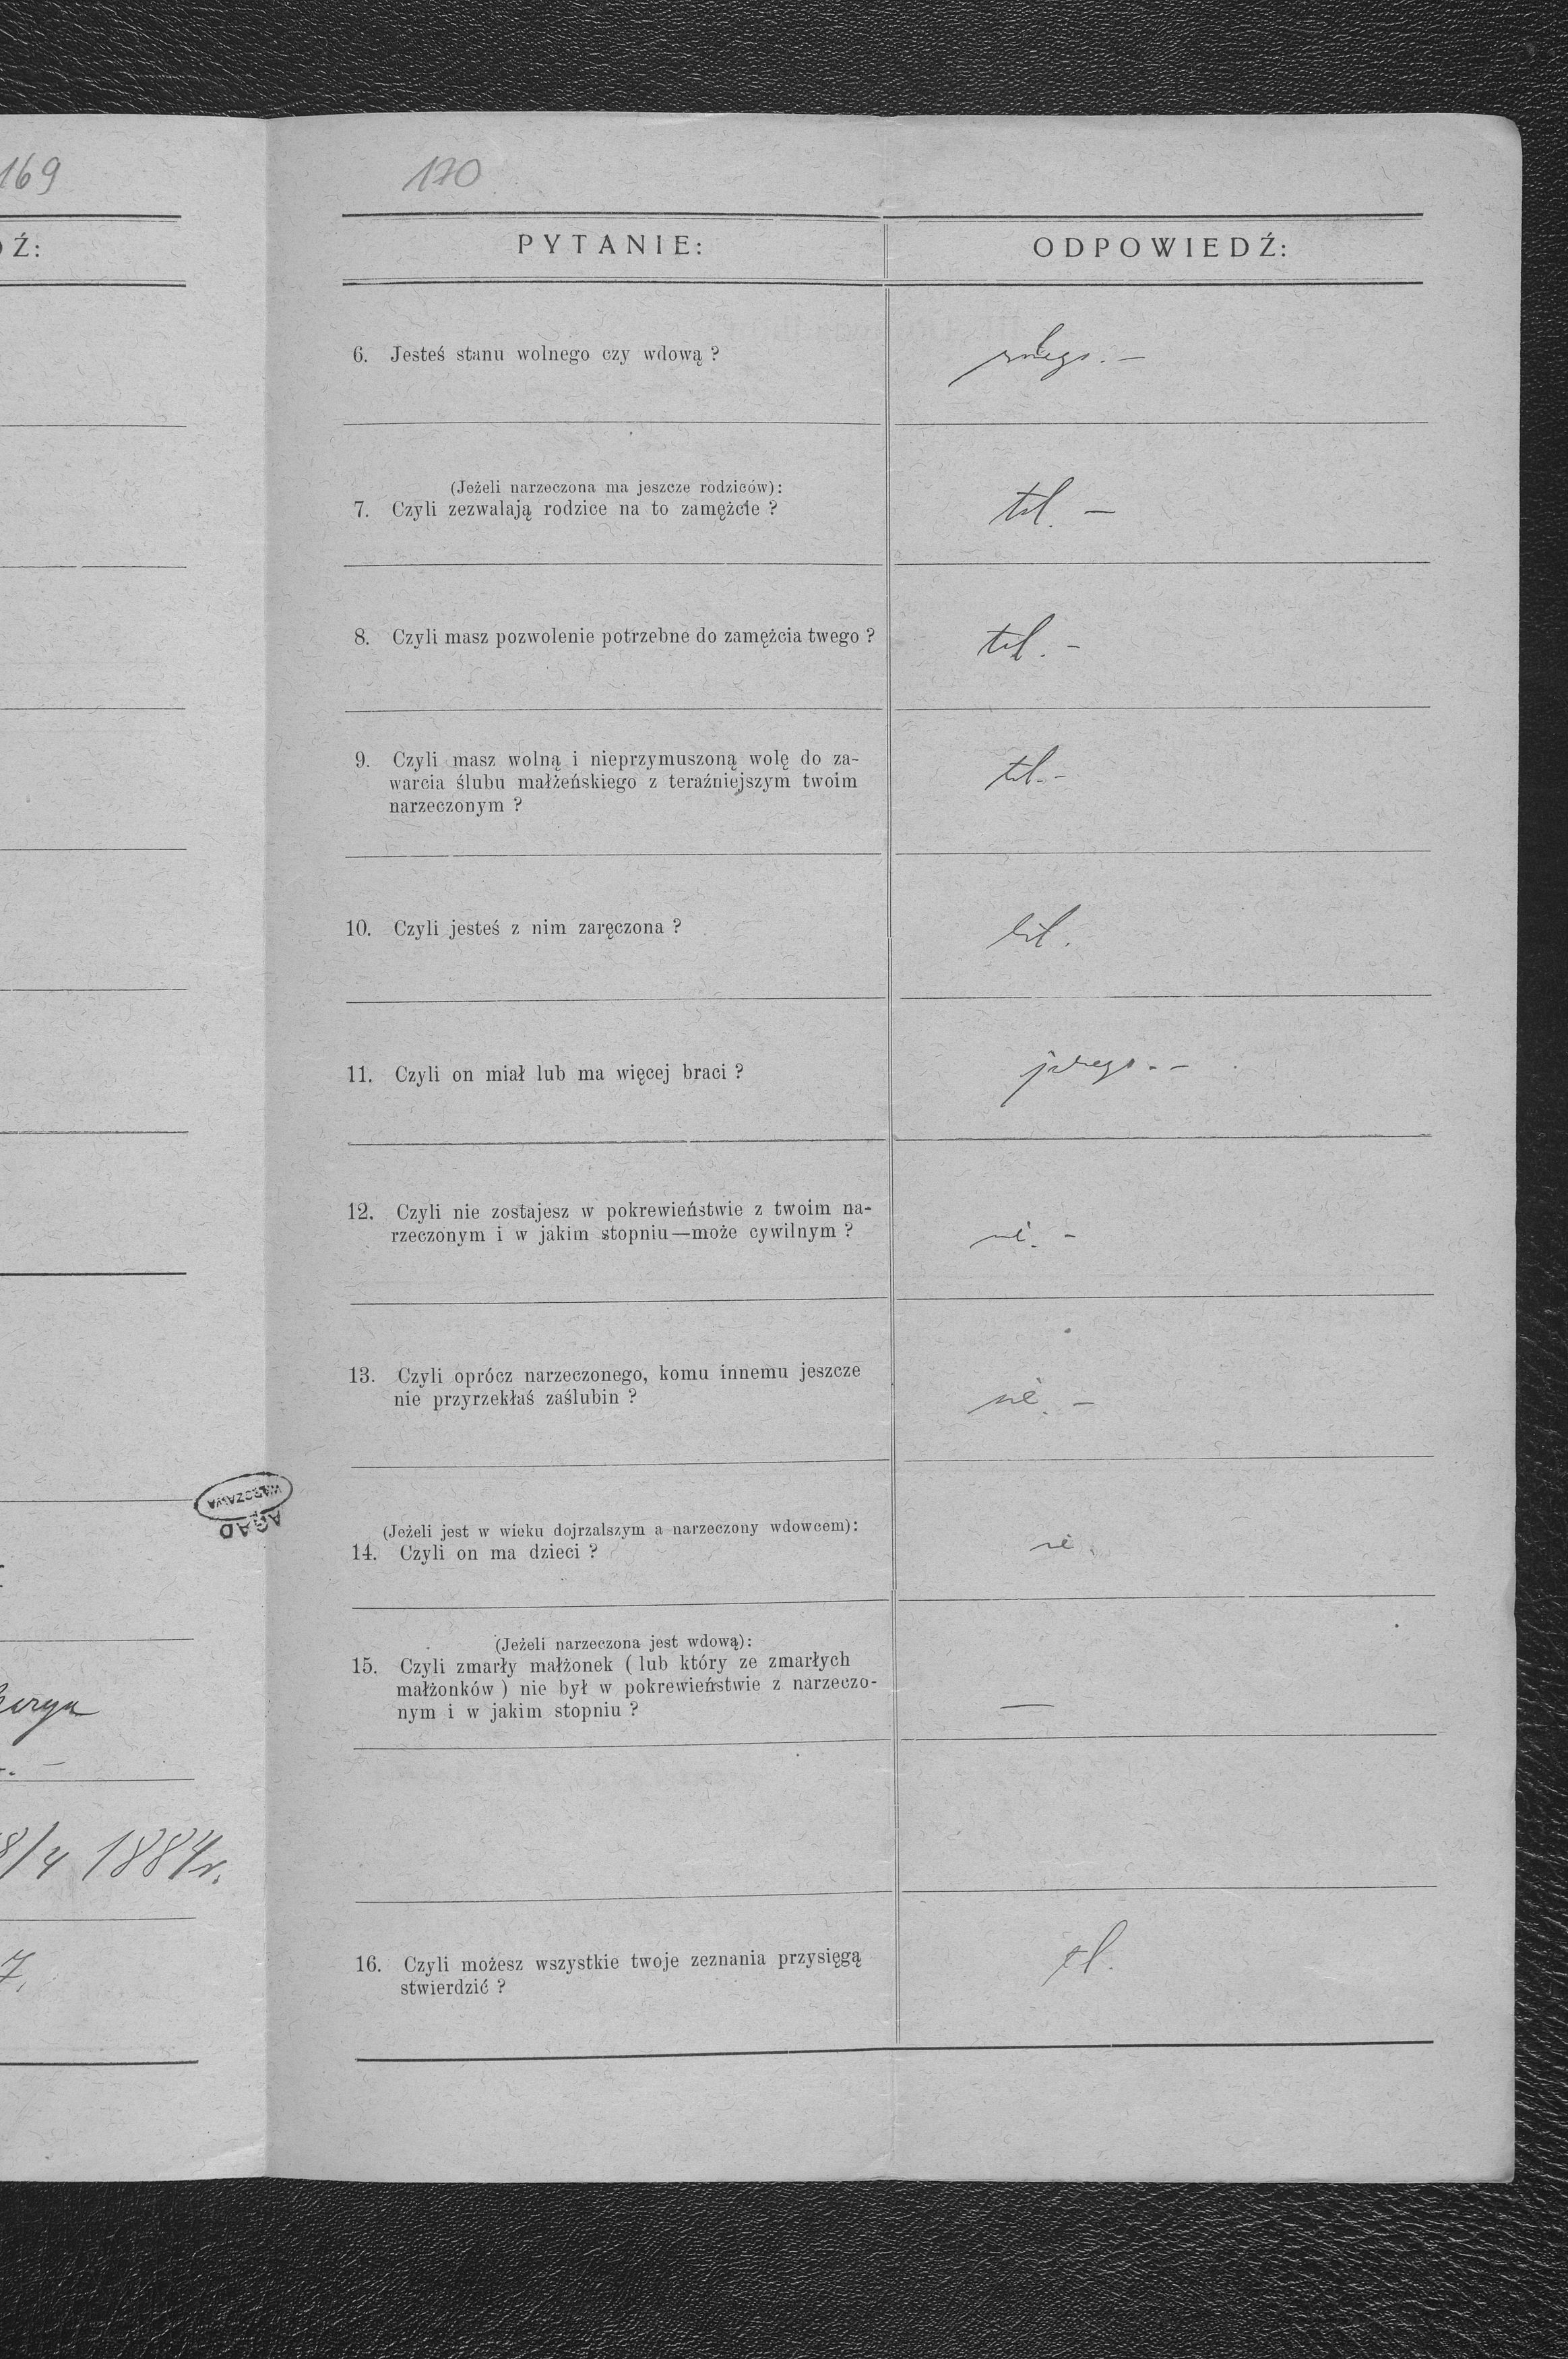 169
DŹ:
170
PYTANIE:
ODPOWIEDŹ:
6. Jesteś stanu wolnego czy wdową ?
wolnego. —
(Jeżeli narzeczona ma jeszcze rodziców):
7. Czyli zezwalają rodzice na to zamężcie ?
tak. —
8. Czyli masz pozwolenie potrzebne do zamężcia twego ?
tak. -
9. Czyli masz wolną i nieprzymuszoną wolę do za-
warcia ślubu małżeńskiego z teraźniejszym twoim
narzeczonym ?
tak. -
10. Czyli jesteś z nim zaręczona ?
tak.
11. Czyli on miał lub ma więcej braci ?
12. Czyli nie zostajesz w pokrewieństwie z twoim na-
rzeczonym i w jakim stopniu—może cywilnym ?
nie. -
13. Czyli oprócz narzeczonego, komu innemu jeszcze
nie przyrzekłaś zaślubin ?
nie. —
(Jeżeli jest w wieku dojrzalszym a narzeczony wdowcem):
14. Czyli on ma dzieci ?
nie
(Jeżeli narzeczona jest wdową):
15. Czyli zmarły małżonek ( lub który ze zmarłych
małżonków ) nie był w pokrewieństwie z narzeczo-
nym i w jakim stopniu ?
—
16. Czyli możesz wszystkie twoje zeznania przysięgą
stwierdzić ?
tak.
AGAD
WARSZAWA
8/4 1884r.
7.